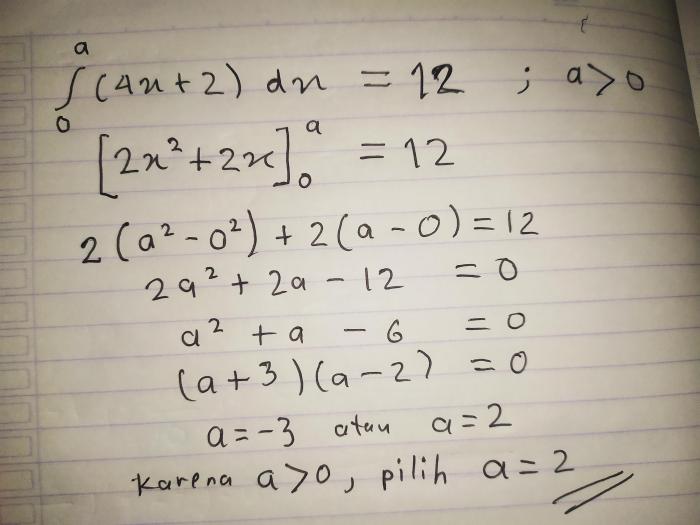 ∫₀ᵃ (4x + 2) dx = 12 ; a > 0
[2x² + 2x]₀ᵃ = 12
2(a² - 0²) + 2(a - 0) = 12
2a² + 2a - 12 = 0
a² + a - 6 = 0
(a + 3)(a - 2) = 0
a = -3 atau a = 2
karena a > 0, pilih a = 2